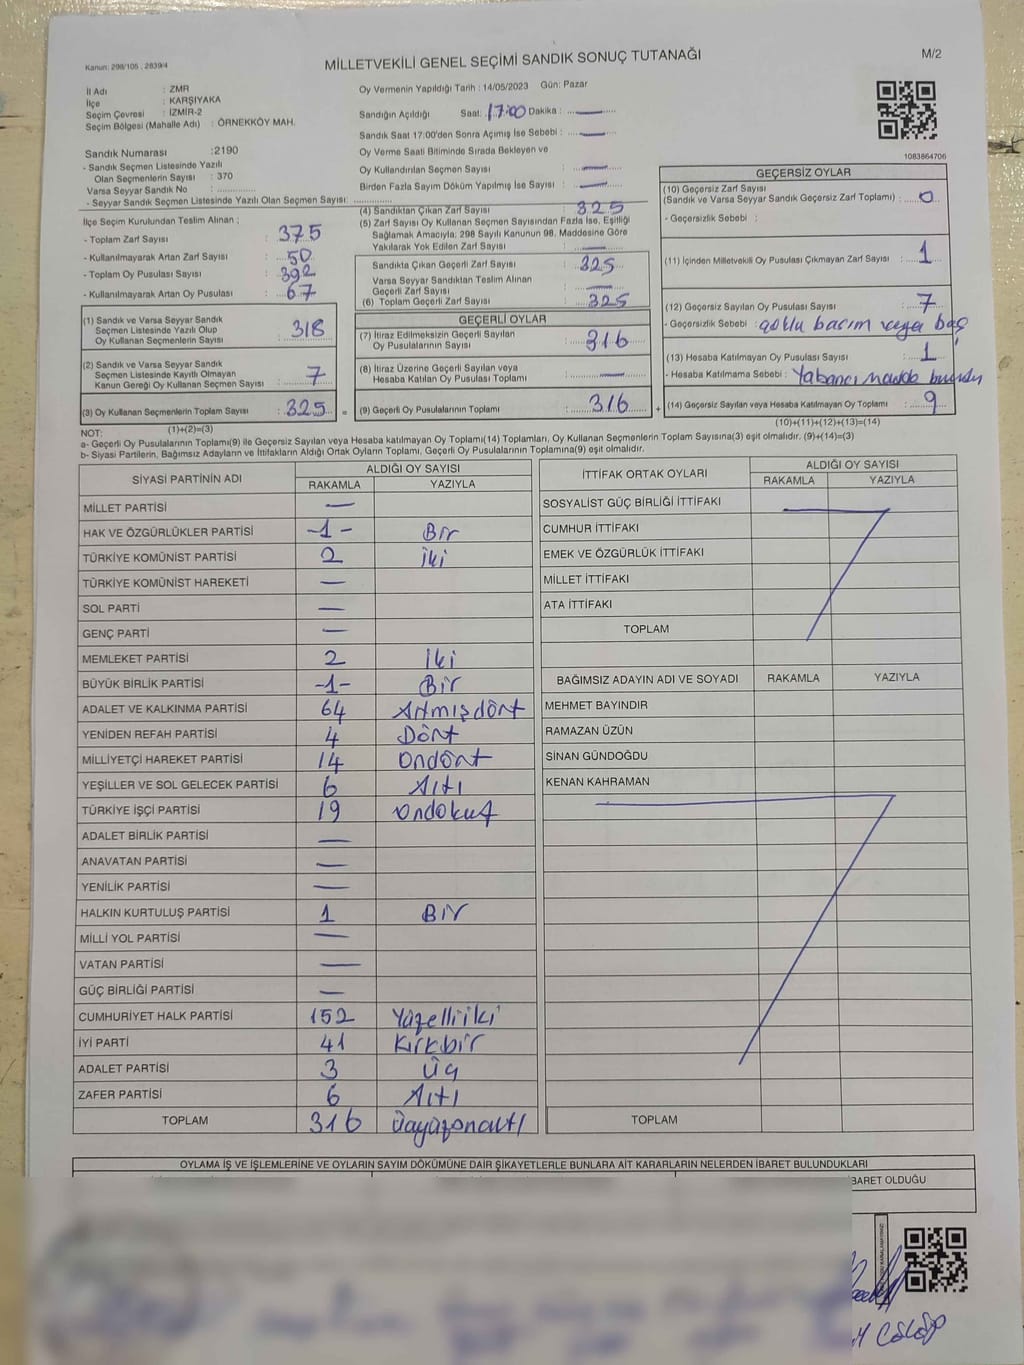 Kanun: 298/105 , 2839/4
MİLLETVEKİLİ GENEL SEÇİMİ SANDIK SONUÇ TUTANAĞI
M/2
İl Adı : ZMR
İlçe : KARŞIYAKA
Seçim Çevresi : İZMİR-2
Seçim Bölgesi (Mahalle Adı) : ÖRNEKKÖY MAH.
Sandık Numarası :2190
- Sandık Seçmen Listesinde Yazılı
Olan Seçmenlerin Sayısı : 370
Varsa Seyyar Sandık No :
- Seyyar Sandık Seçmen Listesinde Yazılı Olan Seçmen Sayısı:
Oy Vermenin Yapıldığı Tarih : 14/05/2023 Gün: Pazar
Sandığın Açıldığı Saat: 17:00 Dakika : —
Sandık Saat 17:00'den Sonra Açımış İse Sebebi : —
Oy Verme Saati Bitiminde Sırada Bekleyen ve
Oy Kullandırılan Seçmen Sayısı : —
Birden Fazla Sayım Döküm Yapılmış İse Sayısı : —
1083864706
İlçe Seçim Kurulundan Teslim Alınan ;
- Toplam Zarf Sayısı : 375
- Kullanılmayarak Artan Zarf Sayısı : 50
- Toplam Oy Pusulası Sayısı : 392
- Kullanılmayarak Artan Oy Pusulası : 67
(1) Sandık ve Varsa Seyyar Seyyar
Seçmen Listesinde Yazılı Olup
Oy Kullanan Seçmenlerin Sayısı : 318
(2) Sandık ve Varsa Seyyar Sandık
Seçmen Listesinde Kayıtlı Olmayan
Kanun Gereği Oy Kullanan Seçmen Sayısı : 7
(3) Oy Kullanan Seçmenlerin Toplam Sayısı : 325 =
(1)+(2)=(3)
(4) Sandıktan Çıkan Zarf Sayısı : 325
(5) Zarf Sayısı Oy Kullanan Seçmen Sayısından Fazla İse, Eşitliği
Sağlamak Amacıyla; 298 Sayılı Kanunun 98. Maddesine Göre
Yakılarak Yok Edilen Zarf Sayısı : —
Sandıkta Çıkan Geçerli Zarf Sayısı : 325
Varsa Seyyar Sandıktan Teslim Alınan
Geçerli Zarf Sayısı : —
(6) Toplam Geçerli Zarf Sayısı : 325
GEÇERLİ OYLAR
(7) İtiraz Edilmeksizin Geçerli Sayılan
Oy Pusulalarının Sayısı : 316
(8) İtiraz Üzerine Geçerli Sayılan veya
Hesaba Katılan Oy Pusulası Toplamı : —
(9) Geçerli Oy Pusulalarının Toplamı : 316 +
GEÇERSİZ OYLAR
(10) Geçersiz Zarf Sayısı
(Sandık ve Varsa Seyyar Sandık Geçersiz Zarf Toplamı) : 0
- Geçersizlik Sebebi :
(11) İçinden Milletvekili Oy Pusulası Çıkmayan Zarf Sayısı : 1
(12) Geçersiz Sayılan Oy Pusulası Sayısı : 7
- Geçersizlik Sebebi : çoklu basım veya boş
(13) Hesaba Katılmayan Oy Pusulası Sayısı : 1
- Hesaba Katılmama Sebebi : Yabancı madde
(14) Geçersiz Sayılan veya Hesaba Katılmayan Oy Toplamı : 9
(10)+(11)+(12)+(13)=(14)
NOT:
a- Geçerli Oy Pusulalarının Toplamı(9) ile Geçersiz Sayılan veya Hesaba katılmayan Oy Toplamı(14) Toplamları, Oy Kullanan Seçmenlerin Toplam Sayısına(3) eşit olmalıdır. (9)+(14)=(3)
b- Siyasi Partilerin, Bağımsız Adayların ve İttifakların Aldığı Ortak Oyların Toplamı, Geçerli Oy Pusulalarının Toplamına(9) eşit olmalıdır.
SİYASİ PARTİNİN ADI ALDIĞI OY SAYISI
RAKAMLA YAZIYLA
MİLLET PARTİSİ —
HAK VE ÖZGÜRLÜKLER PARTİSİ -1- Bir
TÜRKİYE KOMÜNİST PARTİSİ 2 İki
TÜRKİYE KOMÜNİST HAREKETİ —
SOL PARTİ —
GENÇ PARTİ —
MEMLEKET PARTİSİ 2 İki
BÜYÜK BİRLİK PARTİSİ -1- Bir
ADALET VE KALKINMA PARTİSİ 64 Atmışdört
YENİDEN REFAH PARTİSİ 4 Dört
MİLLİYETÇİ HAREKET PARTİSİ 14 Ondört
YEŞİLLER VE SOL GELECEK PARTİSİ 6 Altı
TÜRKİYE İŞÇİ PARTİSİ 19 Ondokuz
ADALET BİRLİK PARTİSİ —
ANAVATAN PARTİSİ —
YENİLİK PARTİSİ —
HALKIN KURTULUŞ PARTİSİ 1 Bir
MİLLİ YOL PARTİSİ —
VATAN PARTİSİ —
GÜÇ BİRLİĞİ PARTİSİ —
CUMHURİYET HALK PARTİSİ 152 Yüzelliiki
İYİ PARTİ 41 Kırkbir
ADALET PARTİSİ 3 Üç
ZAFER PARTİSİ 6 Altı
TOPLAM 316 Üçyüzonaltı
İTTİFAK ORTAK OYLARI ALDIĞI OY SAYISI
RAKAMLA YAZIYLA
SOSYALİST GÜÇ BİRLİĞİ İTTİFAKI
CUMHUR İTTİFAKI
EMEK VE ÖZGÜRLÜK İTTİFAKI
MİLLET İTTİFAKI
ATA İTTİFAKI
TOPLAM
BAĞIMSIZ ADAYIN ADI VE SOYADI RAKAMLA YAZIYLA
MEHMET BAYINDIR
RAMAZAN ÜZÜN
SİNAN GÜNDOĞDU
KENAN KAHRAMAN
TOPLAM
OYLAMA İŞ VE İŞLEMLERİNE VE OYLARIN SAYIM DÖKÜMÜNE DAİR ŞİKAYETLERLE BUNLARA AİT KARARLARIN NELERDEN İBARET BULUNDUKLARI
BARET OLDUĞU